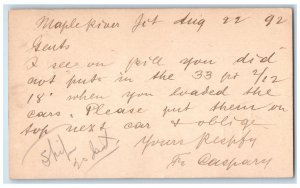 Maple River Jct Aug 22 92
Gents
I see on bill you did
not put in the 33 pc 2/12
18' when you loaded the
cars. Please put them on
top next car & oblige
Yours Respfy
Caspary